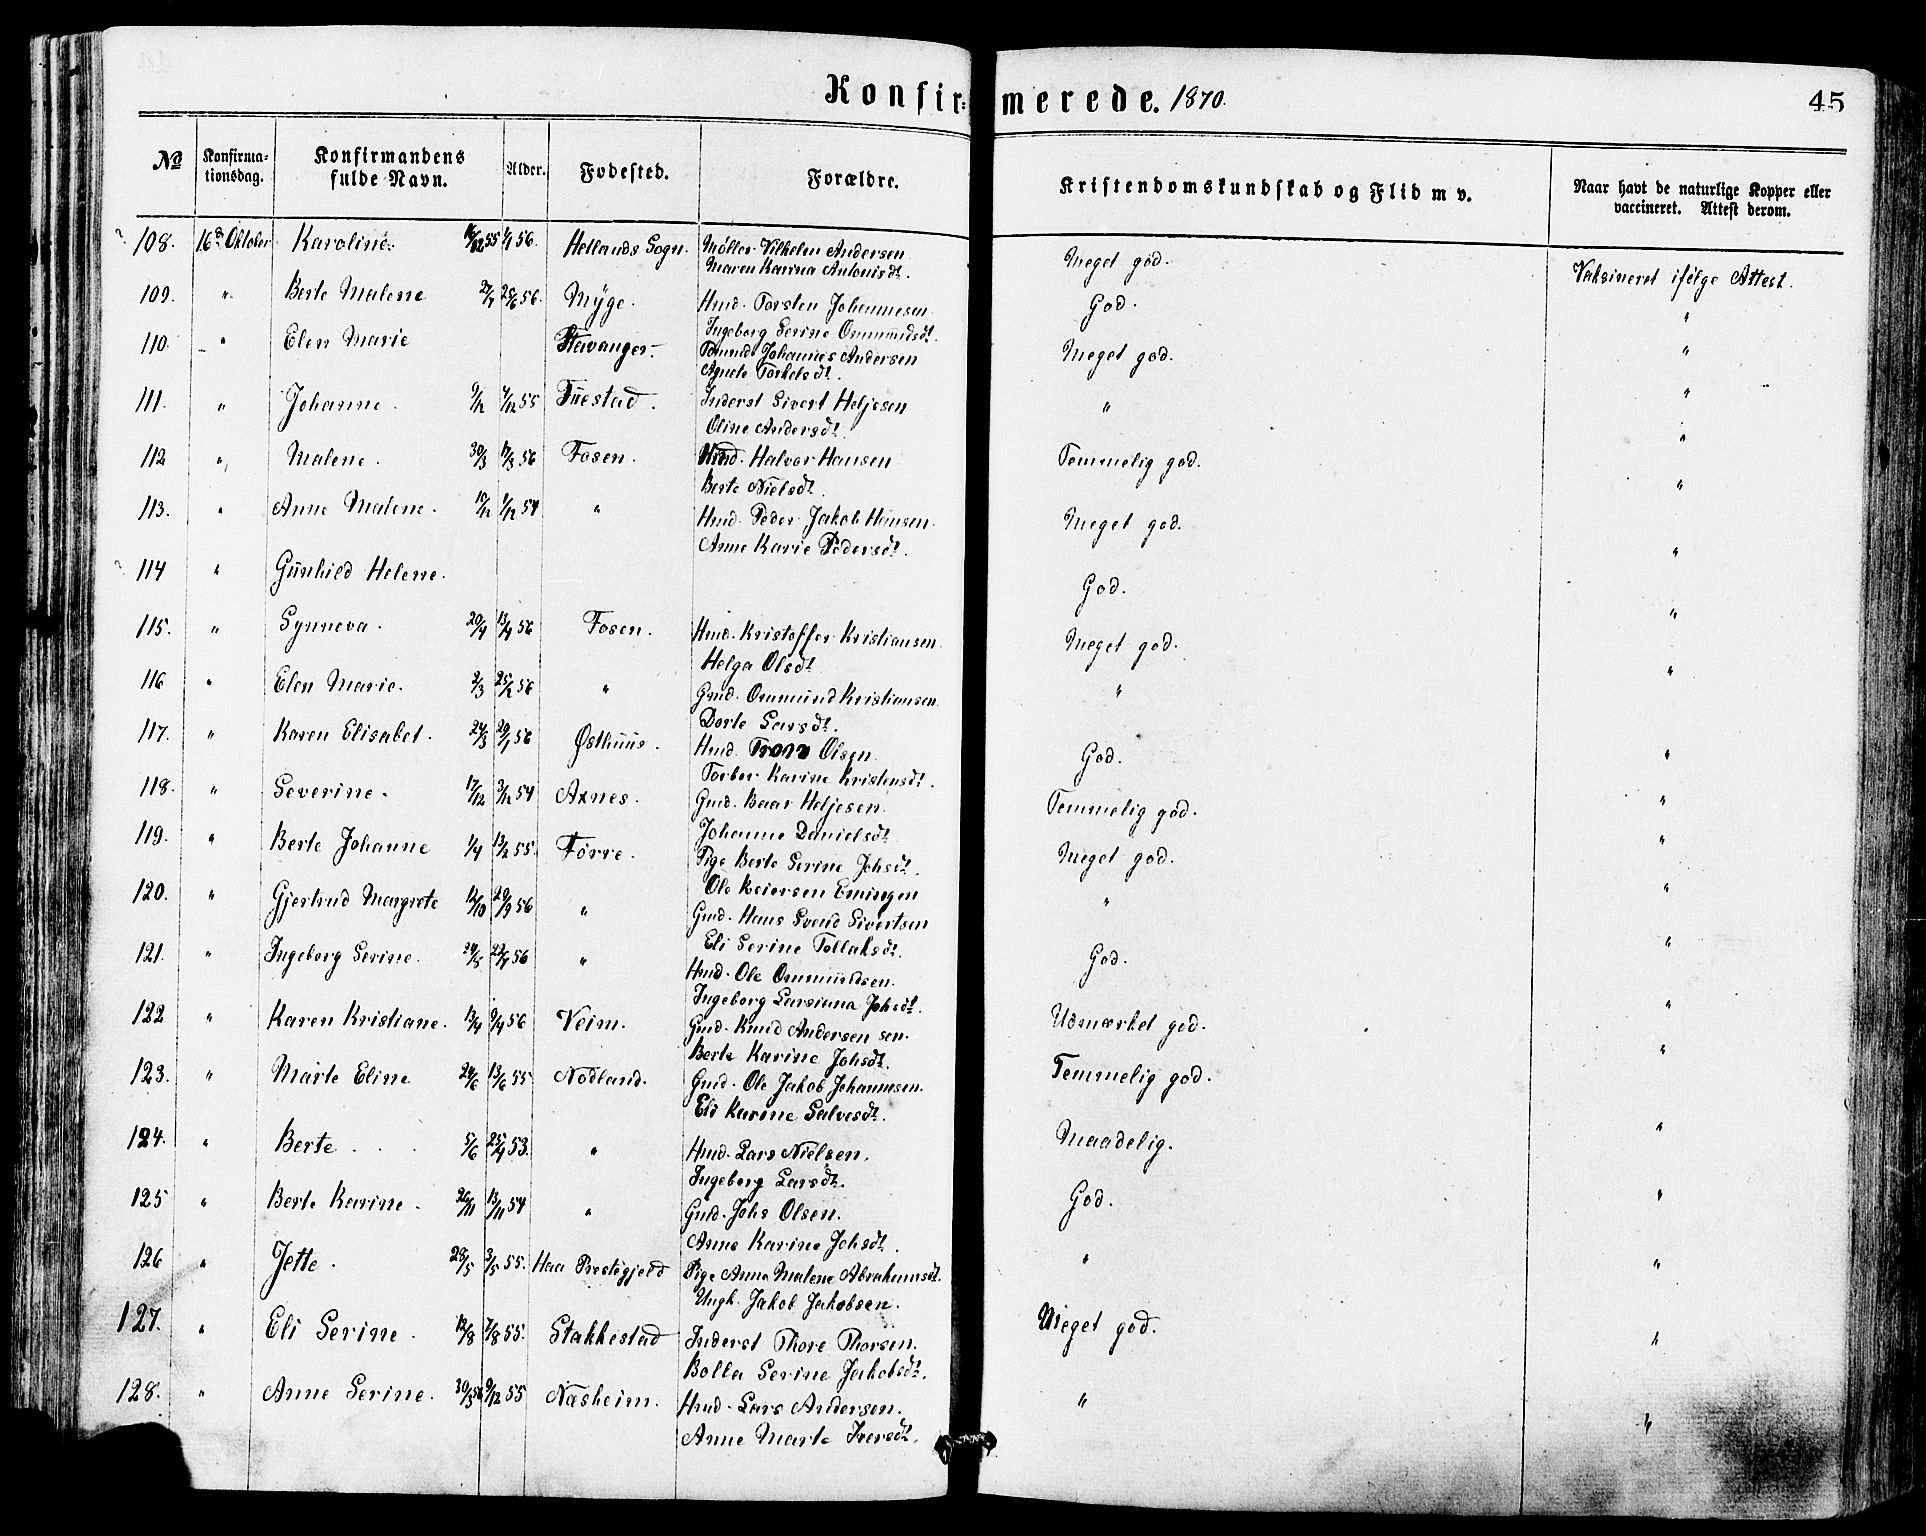 Konfir=merede. 1870. 45
No Konfirmationsdag. Konfirmandens fulde Navn. Alder. Fødested. Forældre. Kristendomskundskab og Flid m v. Naar havt de naturlige Kopper eller vaccineret. Attest derom.
108. 16de Oktober Karoline. 16/12 55 1/1 56. Hetlands Sogn. Møller Vilhelm Andersen Meget god. Vaksineret ifølge Attest.
Maren Karina Antonisdt.
109. " Berte Malene 56. Myge. Hmd. Torsten Johannesen God. "
Ingeborg Serine Ommundsdt.
110. " Elen Marie Stavanger. Johannes Andersen Meget god. "
Agnete Torkelsdt.
111. " Johanne. 9/12 4/12 55 Tuestad. Inderst Sivert Heljesen " "
Oline Andersdt.
112 " Malene. 30/3 17/3 56 Fosen. Hmd. Halvor Hansen Temmelig god. "
Berte Nielsdt.
113. " Anne Malene. 1/12 54 " Hmd. Peder Jakob Hansen. Meget god. "
Anne Karie Pedersdt.
114 " Gunhild Helene. God. "
115. " Synneva. 20/4 13/4 56 Fosen. Hmd. Kristoffer Kristiansen. Meget god. "
Helga Olsdt.
116 " Elen Marie. 2/3 25/2 56 " Gmd. Ommund Kristiansen. " "
Dorte Larsdt.
117. " Karen Elisabet. 24/3 20/1 56 Østhuus. Hmd. Olsen. God. "
Torbor Karine Kristensdt.
118. " Severine. 17/12 3/12 54 Axnes. Gmd. Baar Heljesen. Temmelig god. "
Johanne Danielsdt.
119. " Berte Johanne 1/4 13/2 55. Førre. Pige Berte Serine Johsdt. Meget god. "
Ole Reiersen Emingen
120. " Gjertrud Margrete 12/10 29/9 56 " Gmd. Hans Svend Sivertsen " "
Eli Serine Tollaksdt.
121. " Ingeborg Serine. 56 " Hmd. Ole Ommundsen. God. "
Ingeborg Larsiana Johsdt.
122 " Karen Kristiane. 13/4 9/4 56 Veim. Gmd. Knud Andersen sen. Udmærket god. "
Berte Karine Johsdt.
123. " Marte Eline 24/6 13/6 55 Nodland. Gmd. Ole Jakob Johannesen. Temmelig god. "
Eli Karine Salvesdt.
124. " Berte 5/6 25/4 53. " Hmd. Lars Nielsen. Maadelig. "
Ingeborg Larsdt.
125 " Berte Karine. 26/11 13/11 54 " Gmd. Johs Olsen. God. "
Anne Karine Johsdt.
126 " Jette. 28/5 3/5 55. Haa Prestegjeld Pige Anne Malene Abrahamsdt. " "
Ungk. Jakob Jakobsen.
127. " Eli Serine. 12/8 7/8 55. Stakkestad Inderst Thore Thorsen. Meget god. "
Bolla Serine Jakobsdt.
128. " Anne Serine. 30/3 56 9/12 55 Næsheim. Hmd. Lars Andersen. " "
Anne Marte Iversdt.